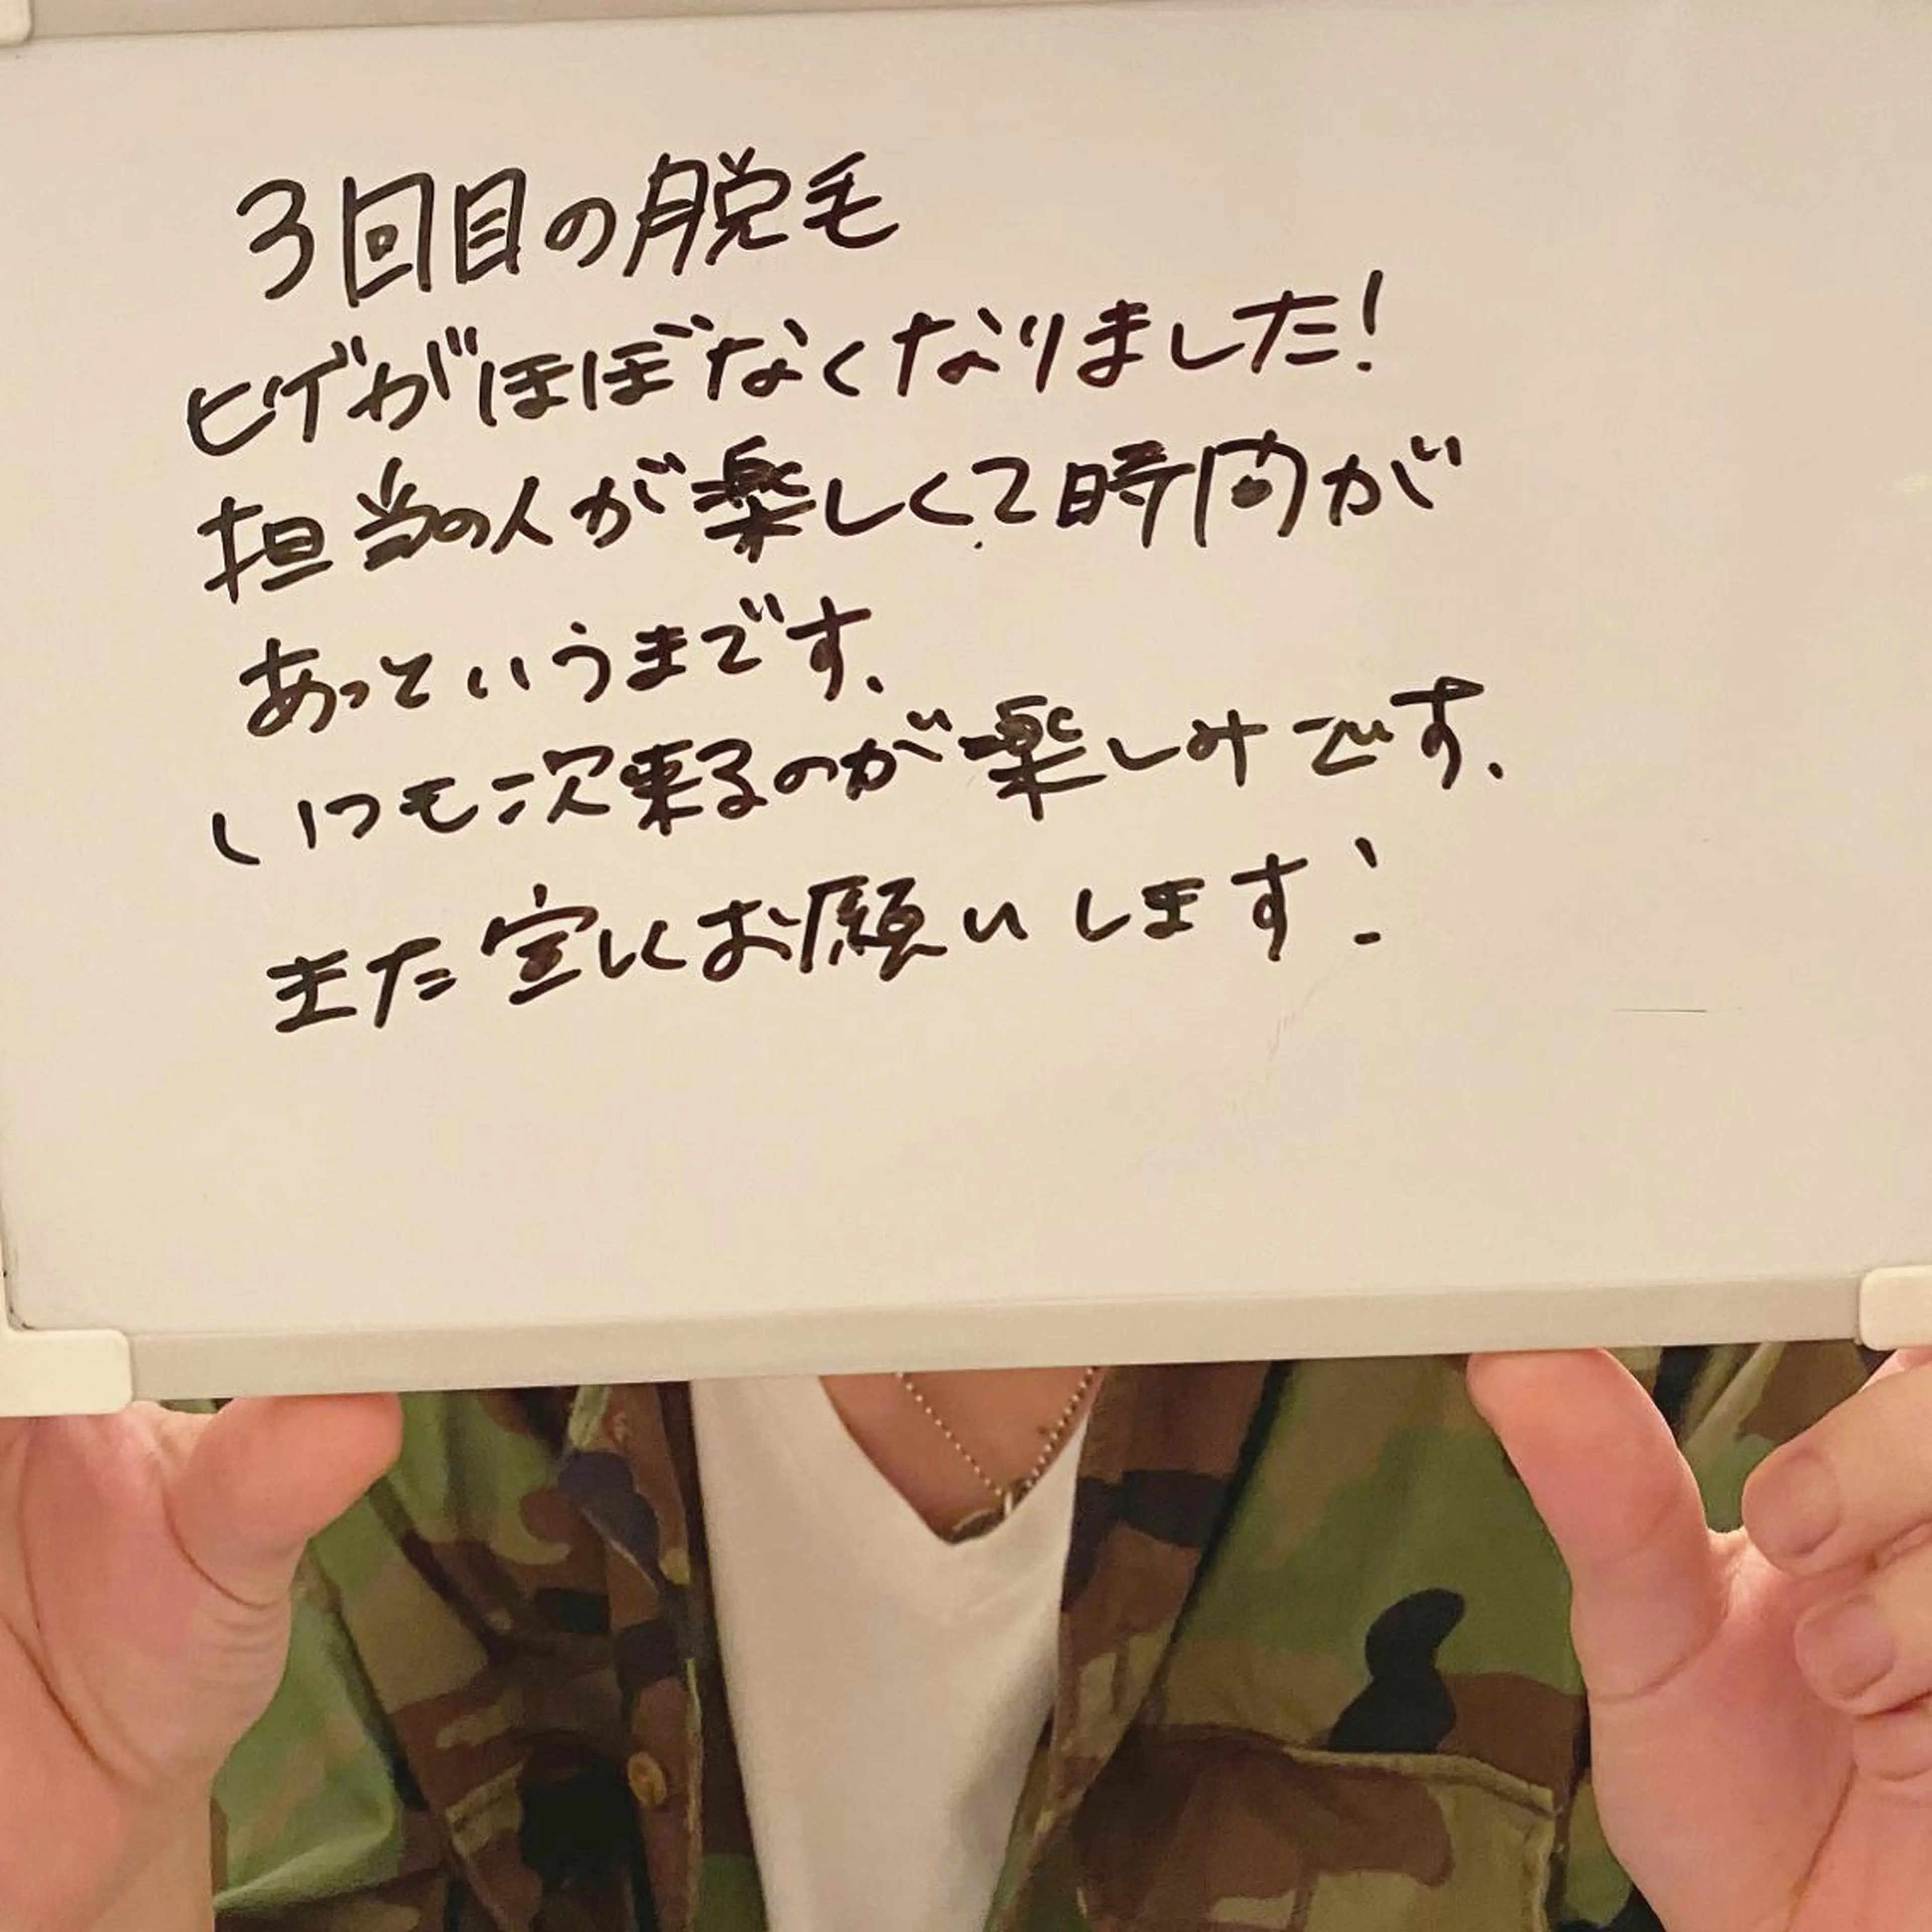 3回目の脱毛
ヒゲがほぼなくなりました!
担当の人が楽しくて時間が
あっというまです.
いつも次来るのが楽しみです.
また宜しくお願いします!